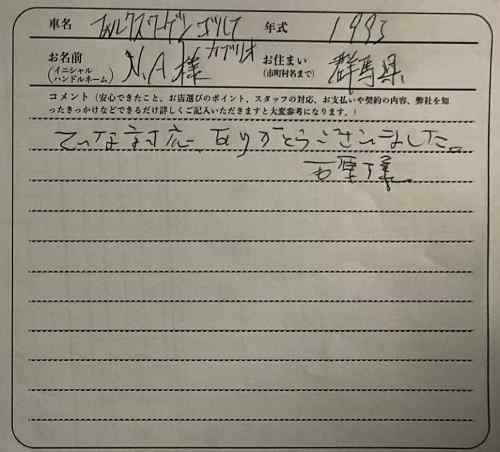 車名 フォルクスワーゲン ゴルフ カブリオ 年式 1993
お名前 (イニシャル ハンドルネーム) N.A 様 お住まい (市町村名まで) 群馬県
コメント（安心できたこと、お店選びのポイント、スタッフの対応、お支払いや契約の内容、弊社を知
ったきっかけなどできるだけ詳しくご記入いただきますと大変参考になります。）
ていねいな対応、ありがとうございました。
様